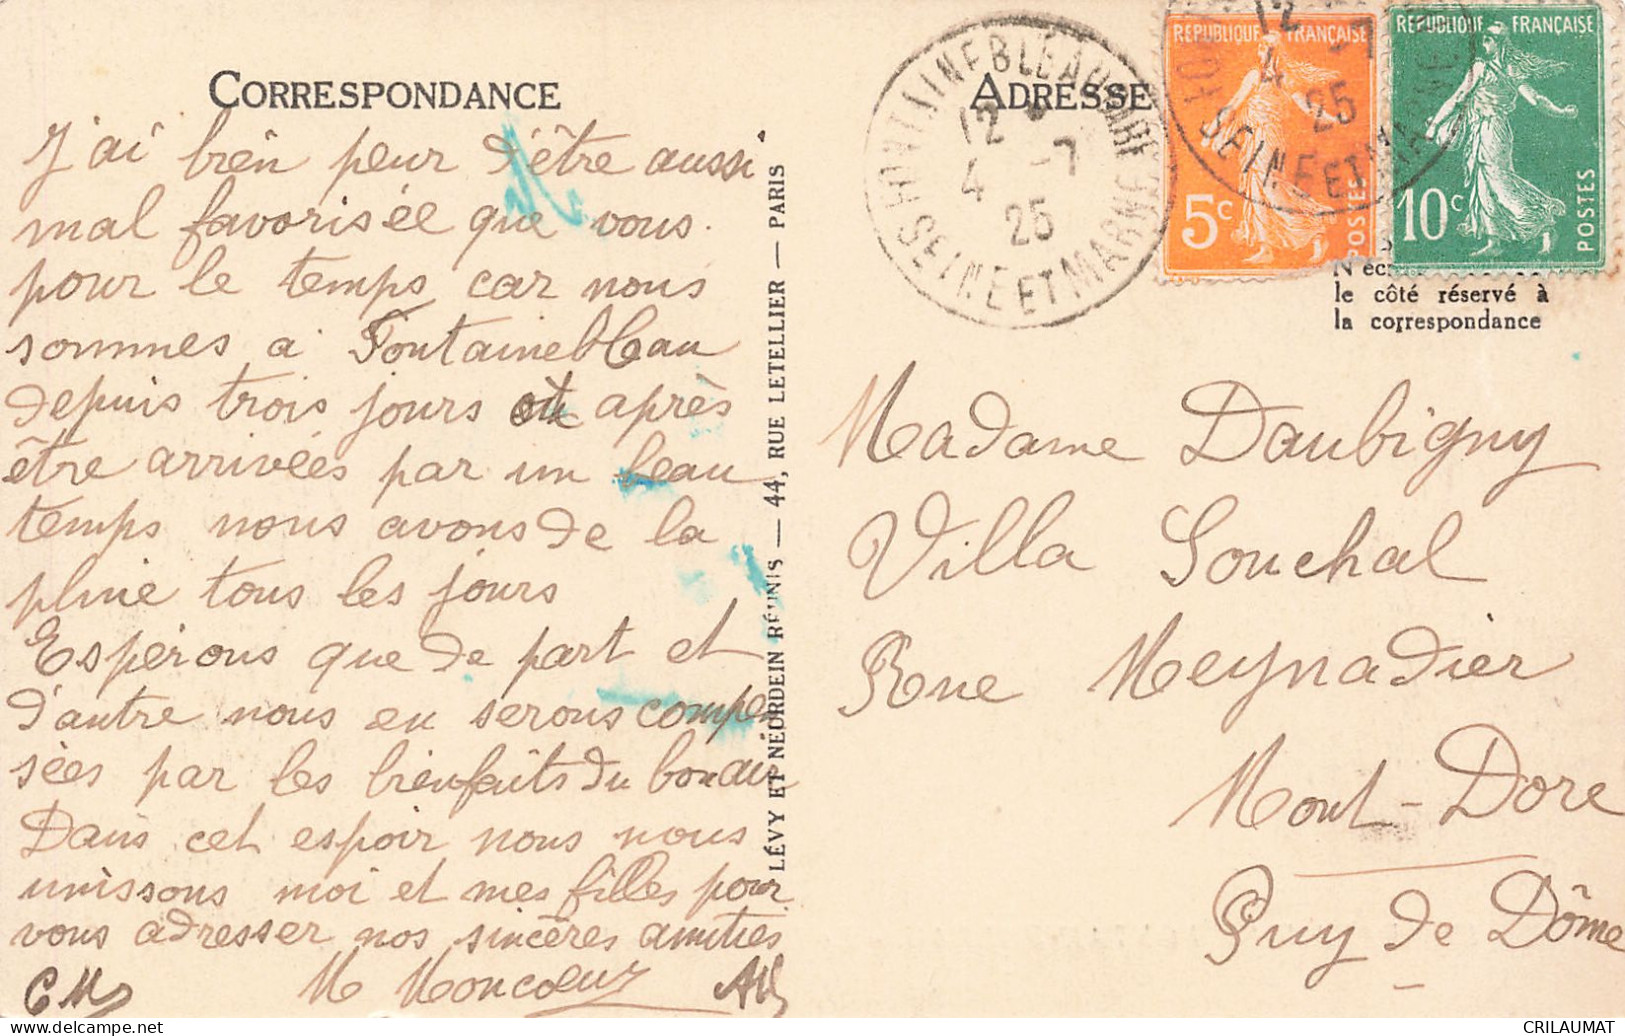 CORRESPONDANCE
J'ai bien peur d'être aussi
mal favorisée que vous.
pour le temps car nous
sommes à Fontainebleau
depuis trois jours et après
être arrivées par un beau
temps nous avons de la
pluie tous les jours
Espérons que de part et
d'autre nous en serons compen
sées par les bienfaits du bon air
Dans cet espoir nous nous
unissons moi et mes filles pour
vous adresser nos sincères amitiés
CM M Moncoeur AM
LÉVY ET NEURDEIN RÉUNIS — 44, RUE LETELLIER — PARIS
ADRESSE
FONTAINEBLEAU GARE
12
4 -7
25
SEINE ET MARNE
RÉPUBLIQUE FRANÇAISE
5c
POSTES
RÉPUBLIQUE FRANÇAISE
10c
POSTES
12 -7
4
25
SEINE ET MARNE
le côté réservé à
la correspondance
Madame Daubigny
Villa Souchal
Rue Meynadier
Mont-Dore
Puy de Dôme
CRILAUMAT